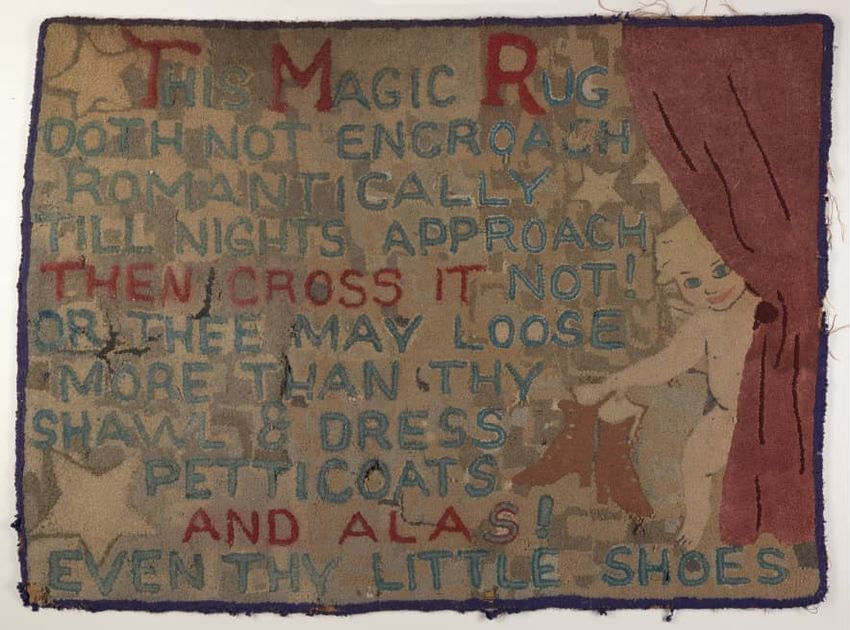 This Magic Rug
DOTH NOT ENCROACH
ROMANTICALLY
TILL NIGHTS APPROACH
THEN CROSS IT NOT!
OR THEE MAY LOOSE
MORE THAN THY
SHAWL & DRESS
PETTICOATS
AND ALAS!
EVEN THY LITTLE SHOES